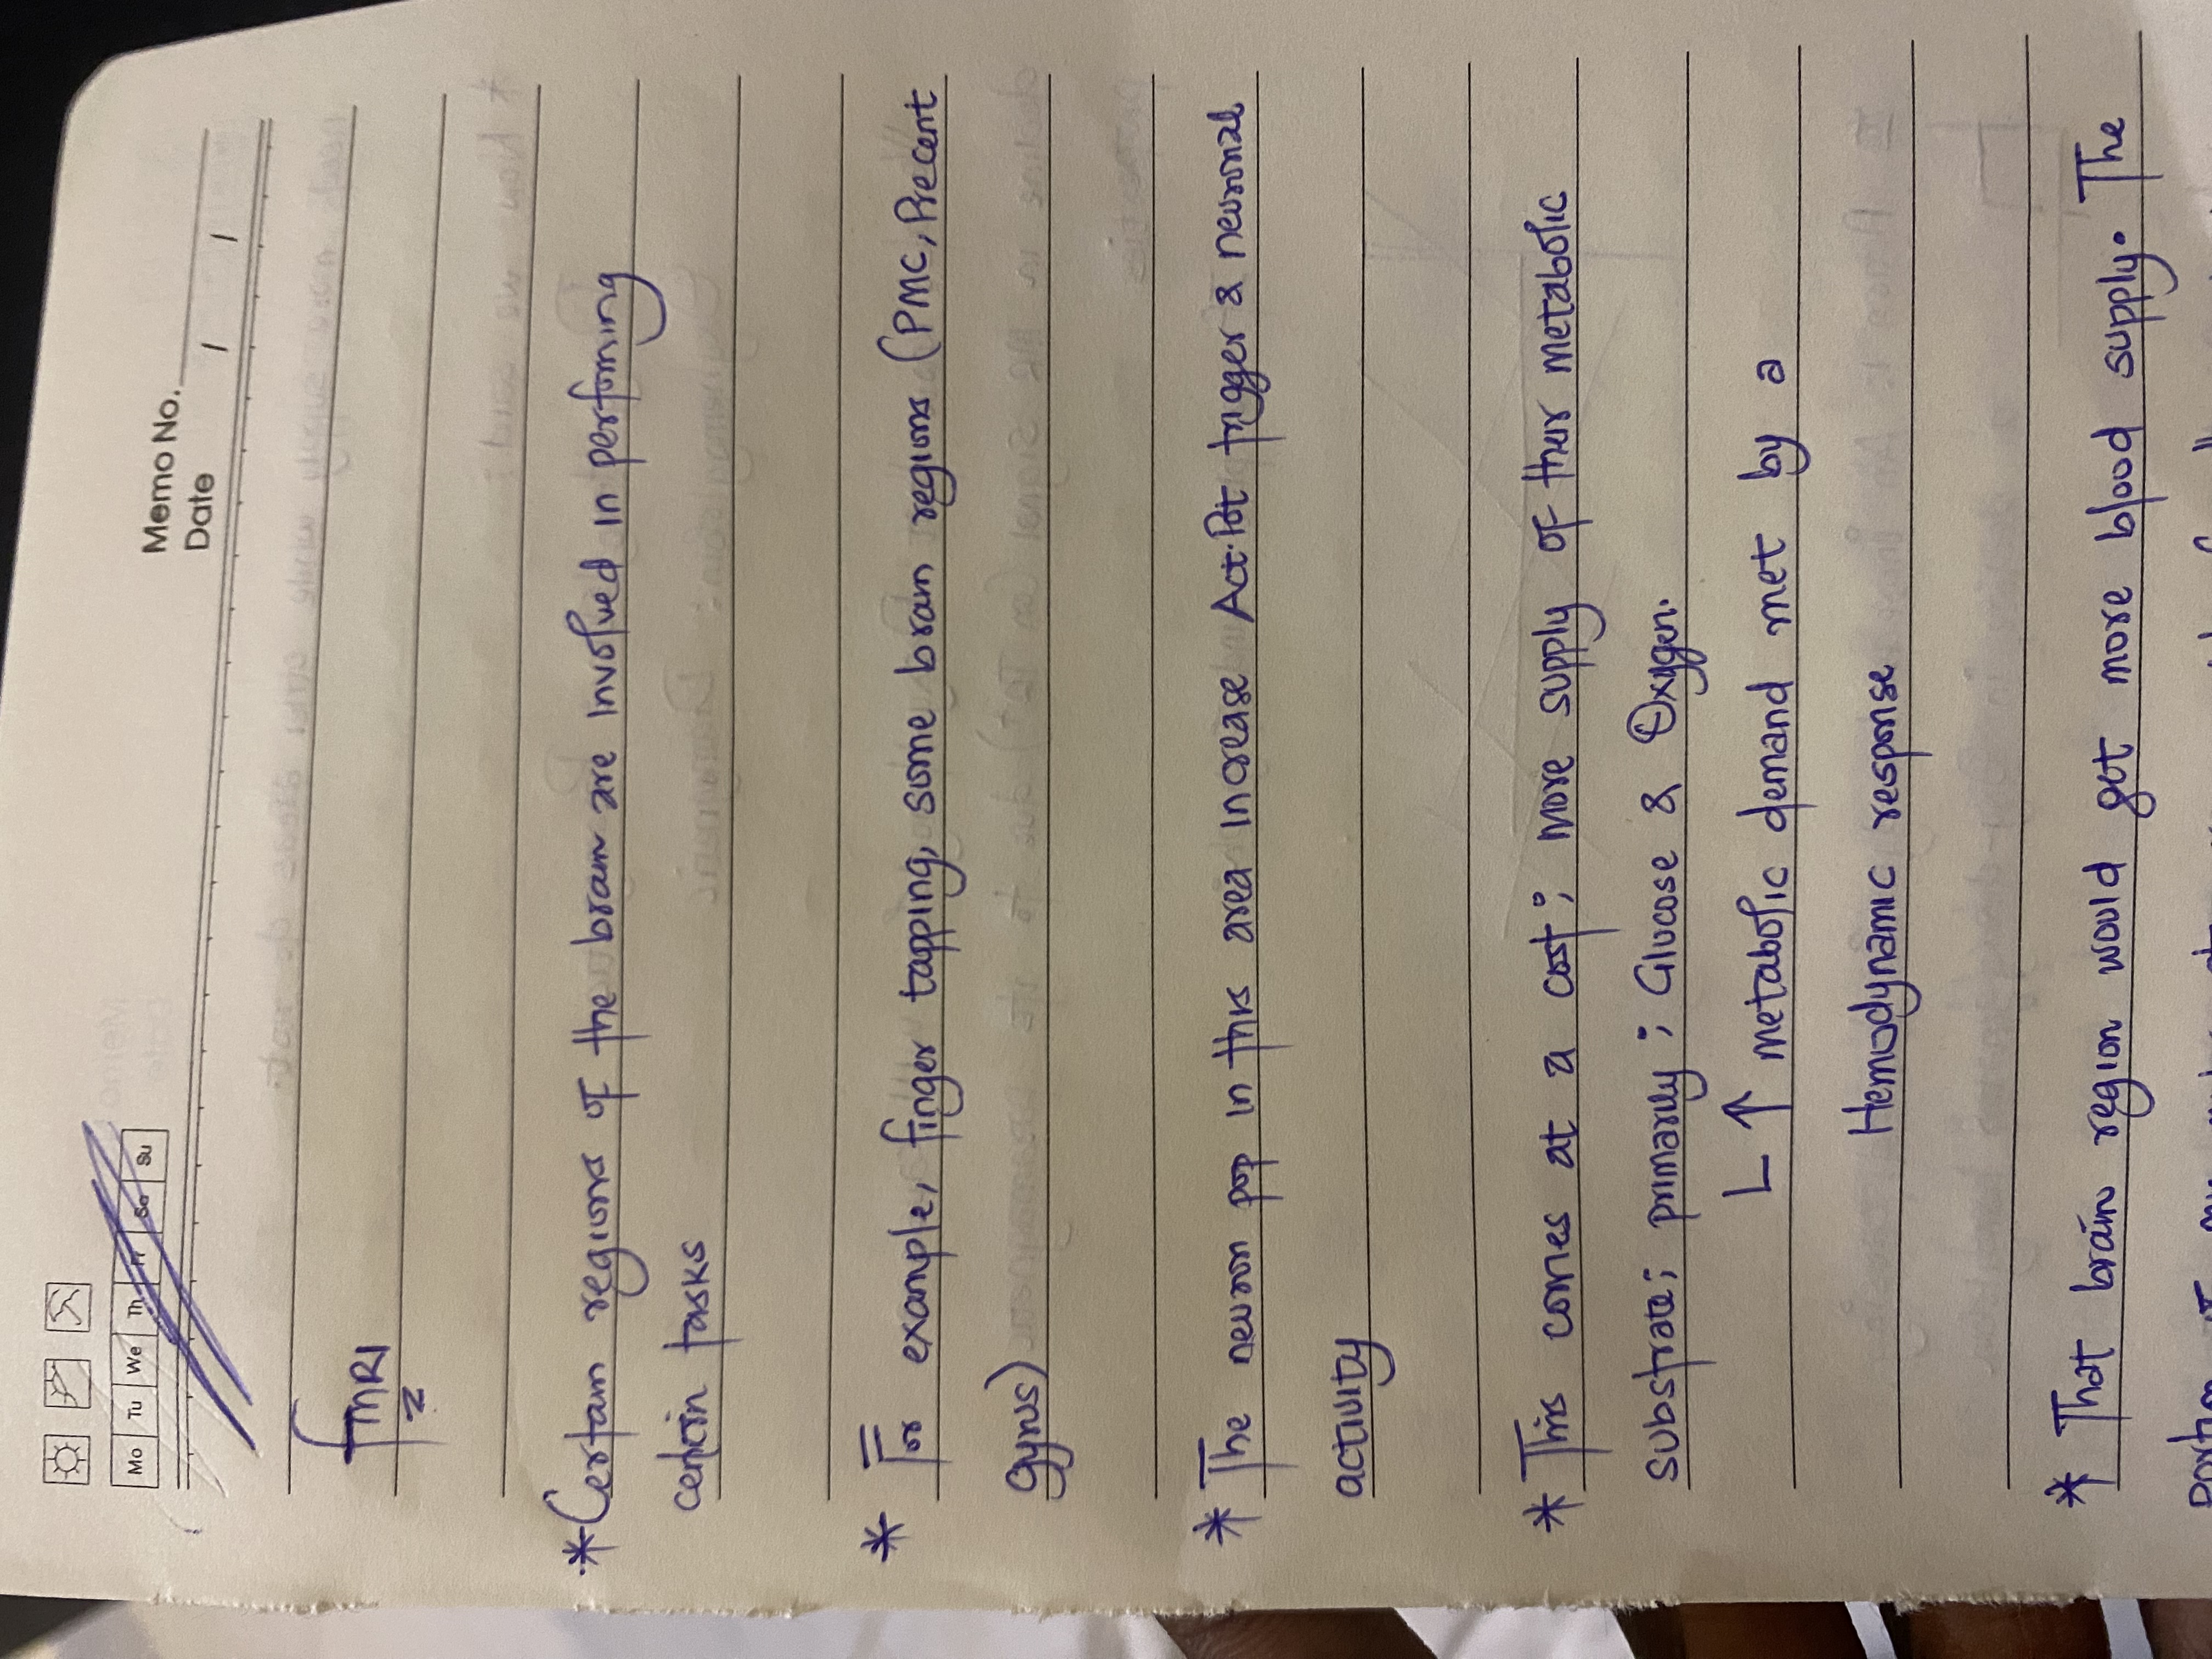 Memo No.
Date / /
Mo Tu We Th Fr Sa Su
fMRI
* Certain regions of the brain are involved in performing
certain tasks
* For example, finger tapping, some brain regions (PMC, Precent
Gyrus)
* The neuron pop in this area increase Act.Pot trigger & neuronal
activity
* This comes at a cost; more supply of their metabolic
substrate; primarily; Glucose & Oxygen.
↑ metabolic demand met by a
Hemodynamic response
* That brain region would get more blood supply. The